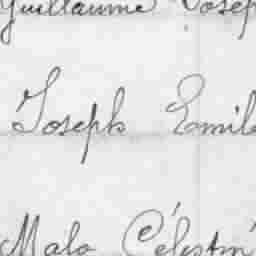 Guillaume Josep
Joseph Emil
Malo Célestin